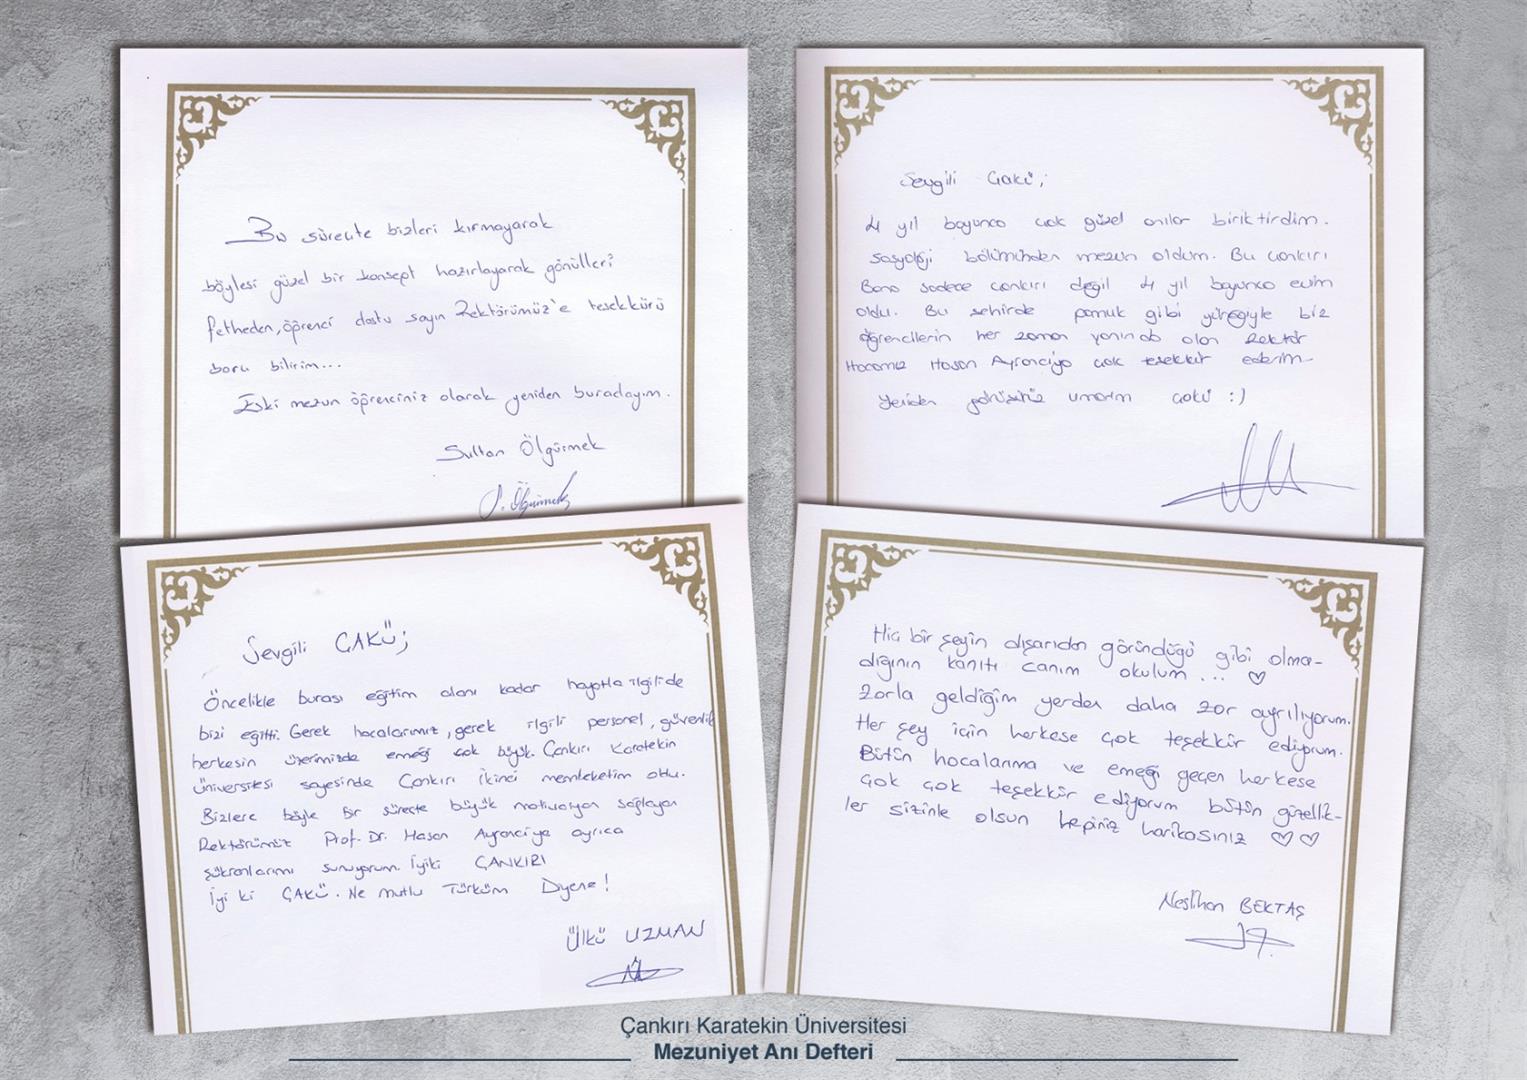 Bu süreçte bizleri kırmayarak
böylesi güzel bir konsept hazırlayarak gönülleri
fetheden, öğrenci dostu sayın Rektörümüz'e teşekkürü
borç bilirim...
Eski mezun öğrenciniz olarak yeniden buradayım.
Sultan Ölgürmek
S. Ölgürmek
Sevgili Çakü;
4 yıl boyunca çok güzel anılar biriktirdim.
Sosyoloji bölümünden mezun oldum. Bu çankırı
Bana sadece çankırı değil 4 yıl boyunca evim
oldu. Bu şehirde pamuk gibi yüreğiyle biz
öğrencilerin her zaman yanında olan Rektör
Hocamız Hasan Ayrancı'ya çok teşekkür ederim.
Yeniden görüşürüz umarım çakü :)
Sevgili ÇAKÜ;
Öncelikle burası eğitim alanı kadar hayatla ilgilide
bizi eğitti. Gerek hocalarımız, gerek ilgili personel, güvenlik
herkesin üzerimizde emeği çok büyük. Çankırı Karatekin
Üniversitesi sayesinde Çankırı ikinci memleketim oldu.
Bizlere böyle bir süreçte büyük motivasyon sağlayan
Rektörümüz Prof. Dr. Hasan Ayrancı'ya ayrıca
şükranlarımı sunuyorum. İyiki ÇANKIRI
İyi ki ÇAKÜ. Ne mutlu Türküm Diyene!
ÜLKÜ UZMAN
Hiç bir şeyin dışarıdan göründüğü gibi olma-
dığının kanıtı canım okulum... ♡
Zorla geldiğim yerden daha zor ayrılıyorum.
Her şey için herkese çok teşekkür ediyorum.
Bütün hocalarıma ve emeği geçen herkese
çok çok teşekkür ediyorum bütün güzellik-
ler sizinle olsun hepiniz harikasınız ♡ ♡
Neslihan BEKTAŞ
Çankırı Karatekin Üniversitesi
Mezuniyet Anı Defteri